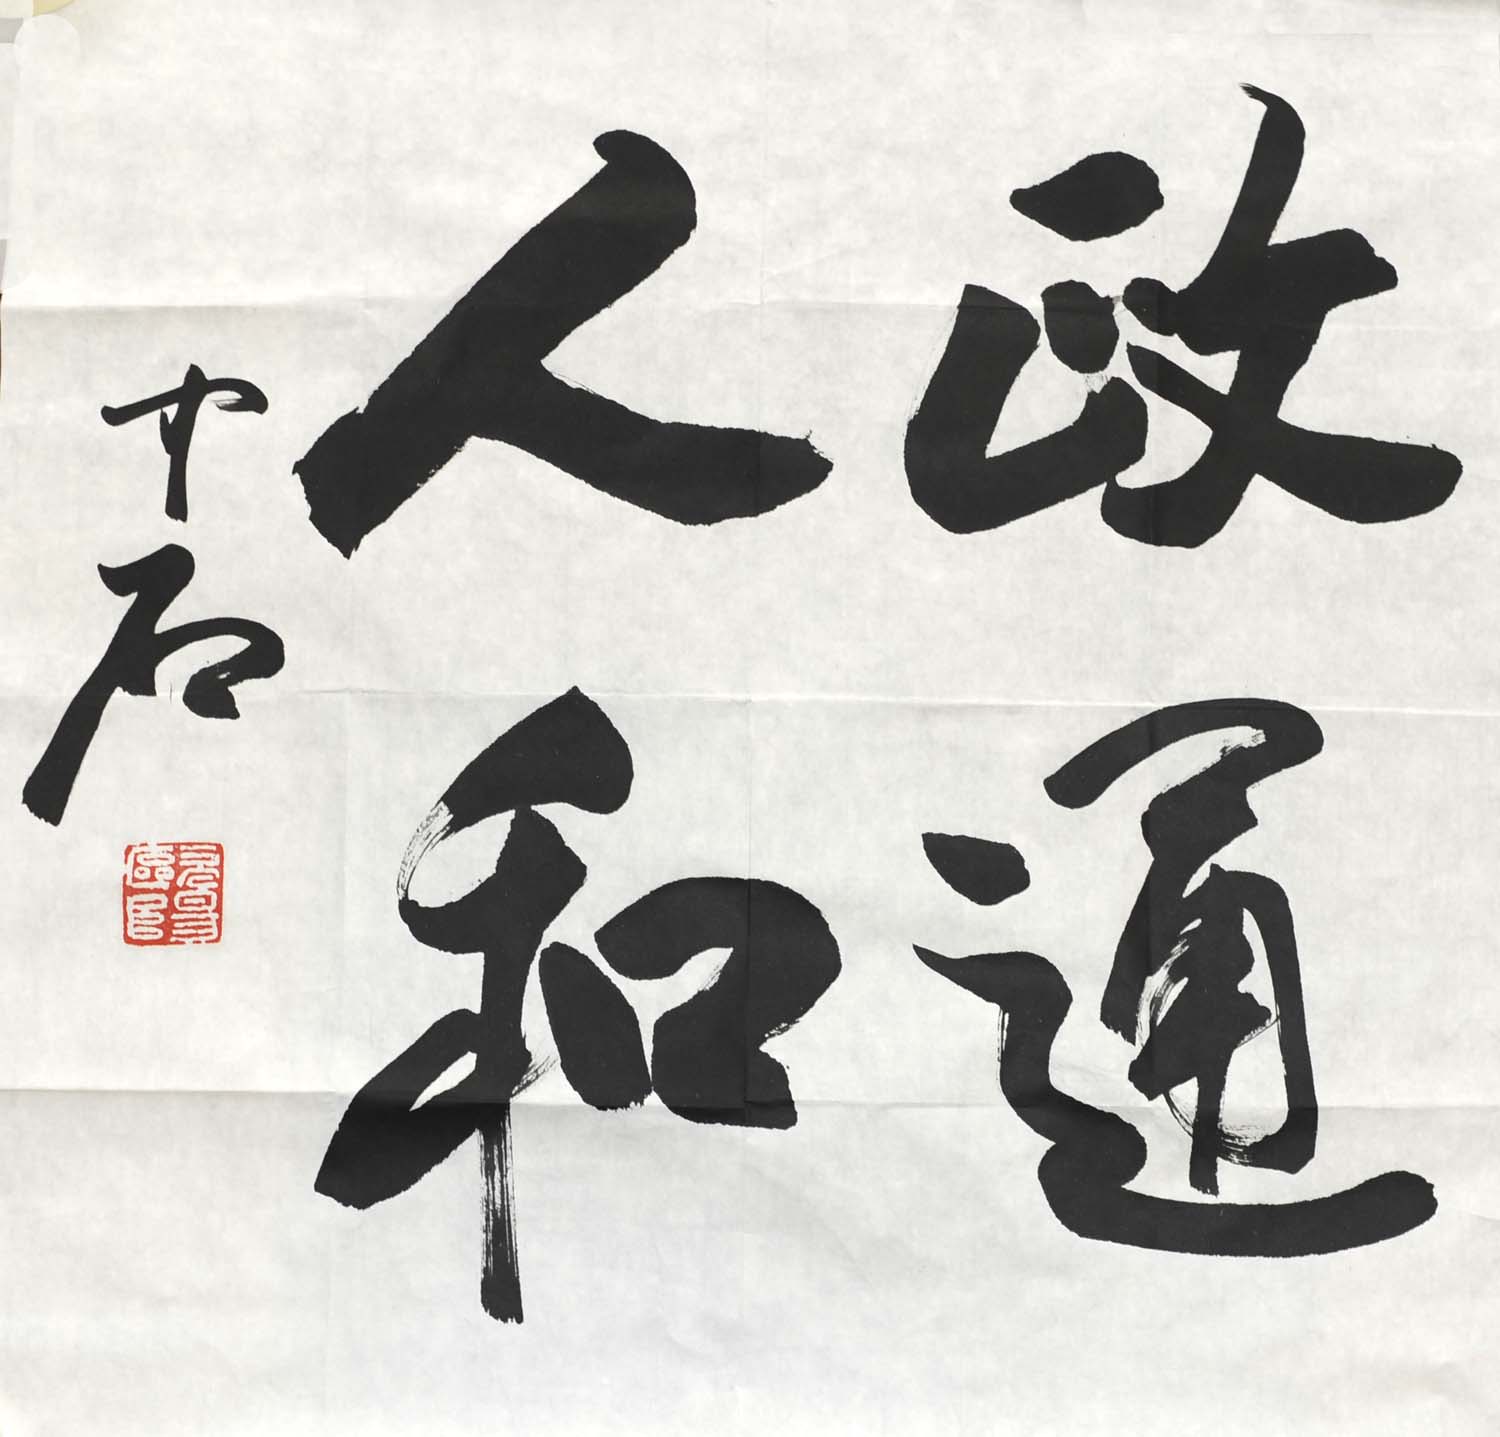 政通
人和
中石